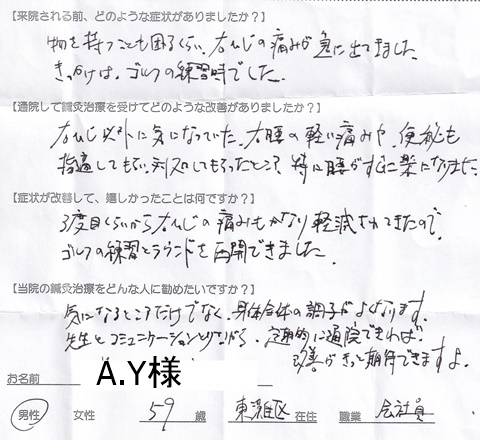 【来院される前、どのような症状がありましたか？】
物を持つことも困るくらい、右ひじの痛みが急に出てました
きっかけは、ゴルフの練習時でした。
【通院して鍼灸治療を受けてどのような改善がありましたか？】
右ひじ以外に気になっていた、右腰の軽い痛みや、便秘も
指適してもらい対処してもらったところ、特に腰がすぐに楽になりました。
【症状が改善して、嬉しかったことは何ですか？】
3度目くらいから右ひじの痛みもかなり軽減されてきたので、
ゴルフの練習とラウンドを再開できました。
【当院の鍼灸治療をどんな人に勧めたいですか？】
気になるところだけでなく、身体全体の調子がよくなります。
先生とコミュニケーションとりながら、定期的に通院できれば、
改善がきっと期待できますよ。
お名前 A.Y様
男性 女性 59 歳 東灘区 在住 職業 会社員